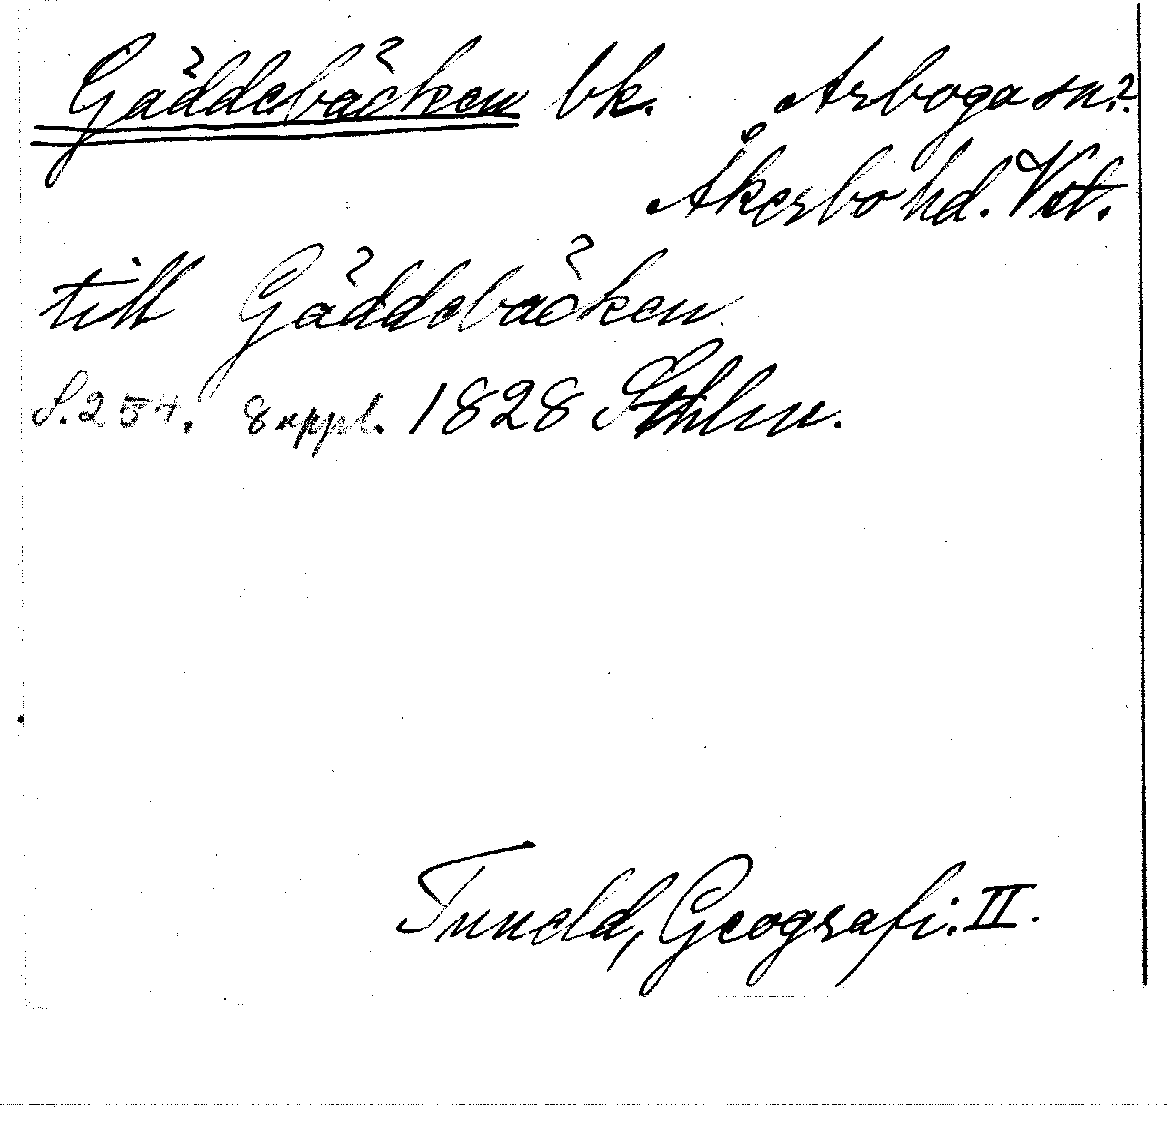 Gäddebäcken bk. Arboga sn?
Åkerbo hd. Vstm.
till Gäddebäcken
S. 254. 8 uppl. 1828 Sthlm.
Tuneld, Geografi. II.